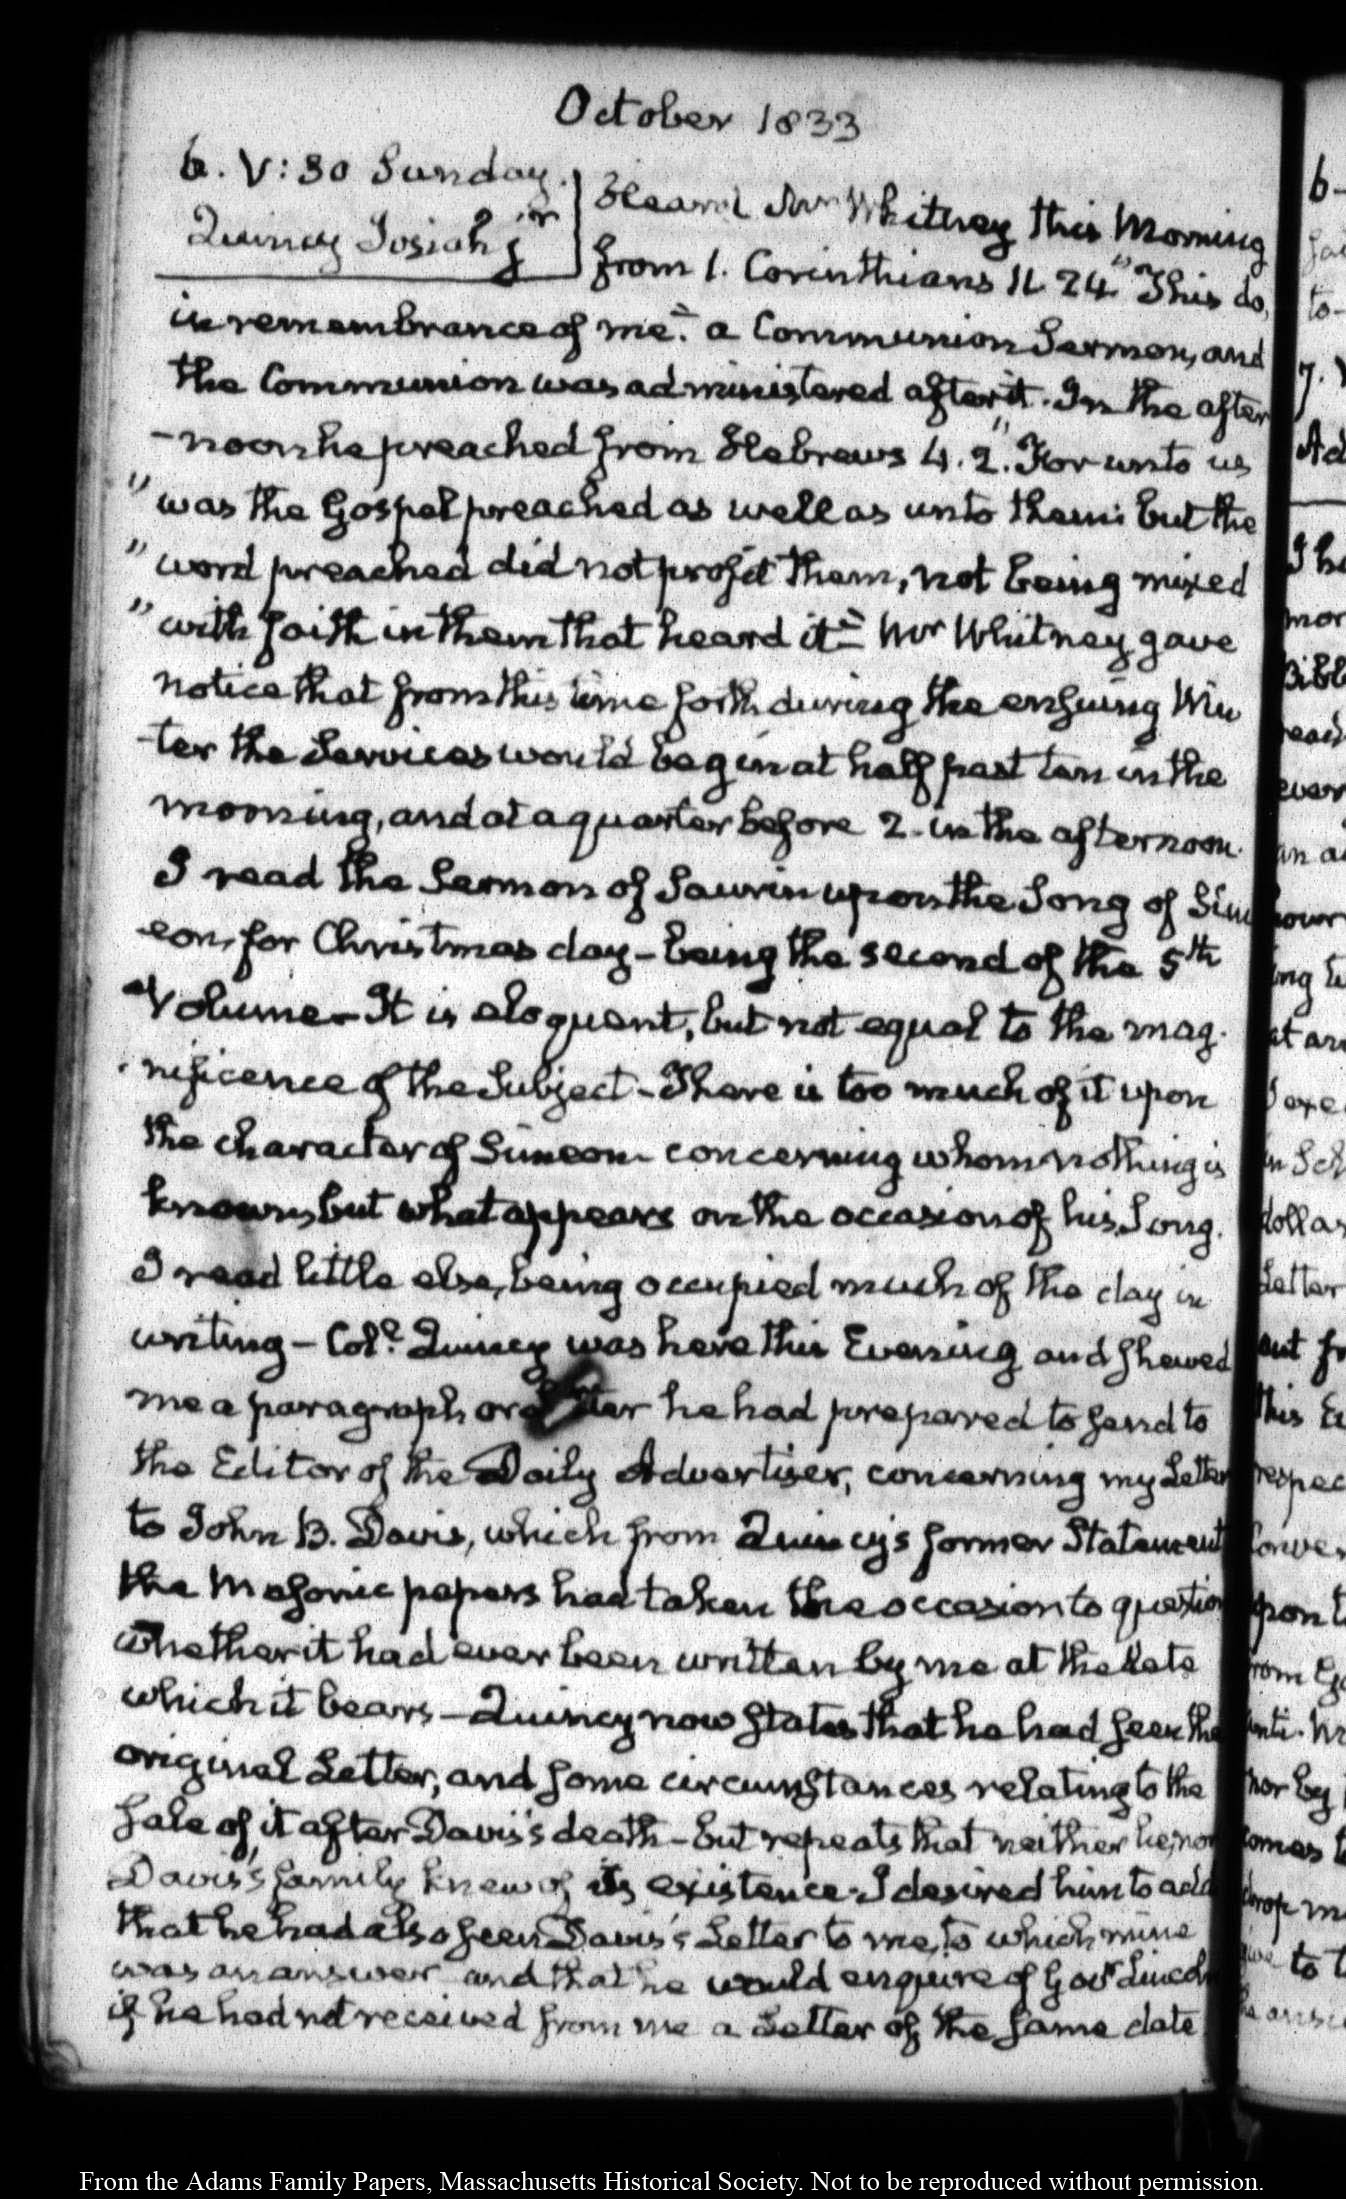 October 1833
6. V:30 Sunday.
Quincy Josiah jr
Heard Mr Whitney this Morning
from 1. Corinthians 11. 24 "This do,
in remembrance of me." a Communion Sermon, and
the Communion was administered after it. In the after
-noon he preached from Hebrews 4. 2. "For unto us
"was the Gospel preached as well as unto them: but the
"word preached did not profit them, not being mixed
"with faith in them that heard it" Mr Whitney gave
notice that from this time forth during the ensuing Win
-ter the Services would begin at half past ten in the
morning, and at a quarter before 2. in the afternoon.
I read the Sermon of Saurin upon the Song of Sim
eon, for Christmas day - being the second of the 5th
Volume - It is eloquent, but not equal to the mag-
nificence of the Subject - There is too much of it upon
the character of Simeon concerning whom nothing is
known, but what appears on the occasion of his Song.
I read little else, being occupied much of the day in
writing - Coll. Quincy was here this Evening and shewed
me a paragraph or a he had prepared to send to
the Editor of the Daily Advertiser, concerning my Letter
to John B. Davis, which from Quincy's former Statement
the Masonic papers had taken the occasion to question
whether it had ever been written by me at the date
which it bears - Quincy now states that he had seen the
original Letter, and some circumstances relating to the
sale of it after Davis's death - but repeats that neither he, nor
Davis's family knew of its existence. I desired him to add
that he had also seen Davis's Letter to me, to which mine
was an answer and that he would enquire of Govr Lincoln
if he had not received from me a Letter of the same date
From the Adams Family Papers, Massachusetts Historical Society. Not to be reproduced without permission.